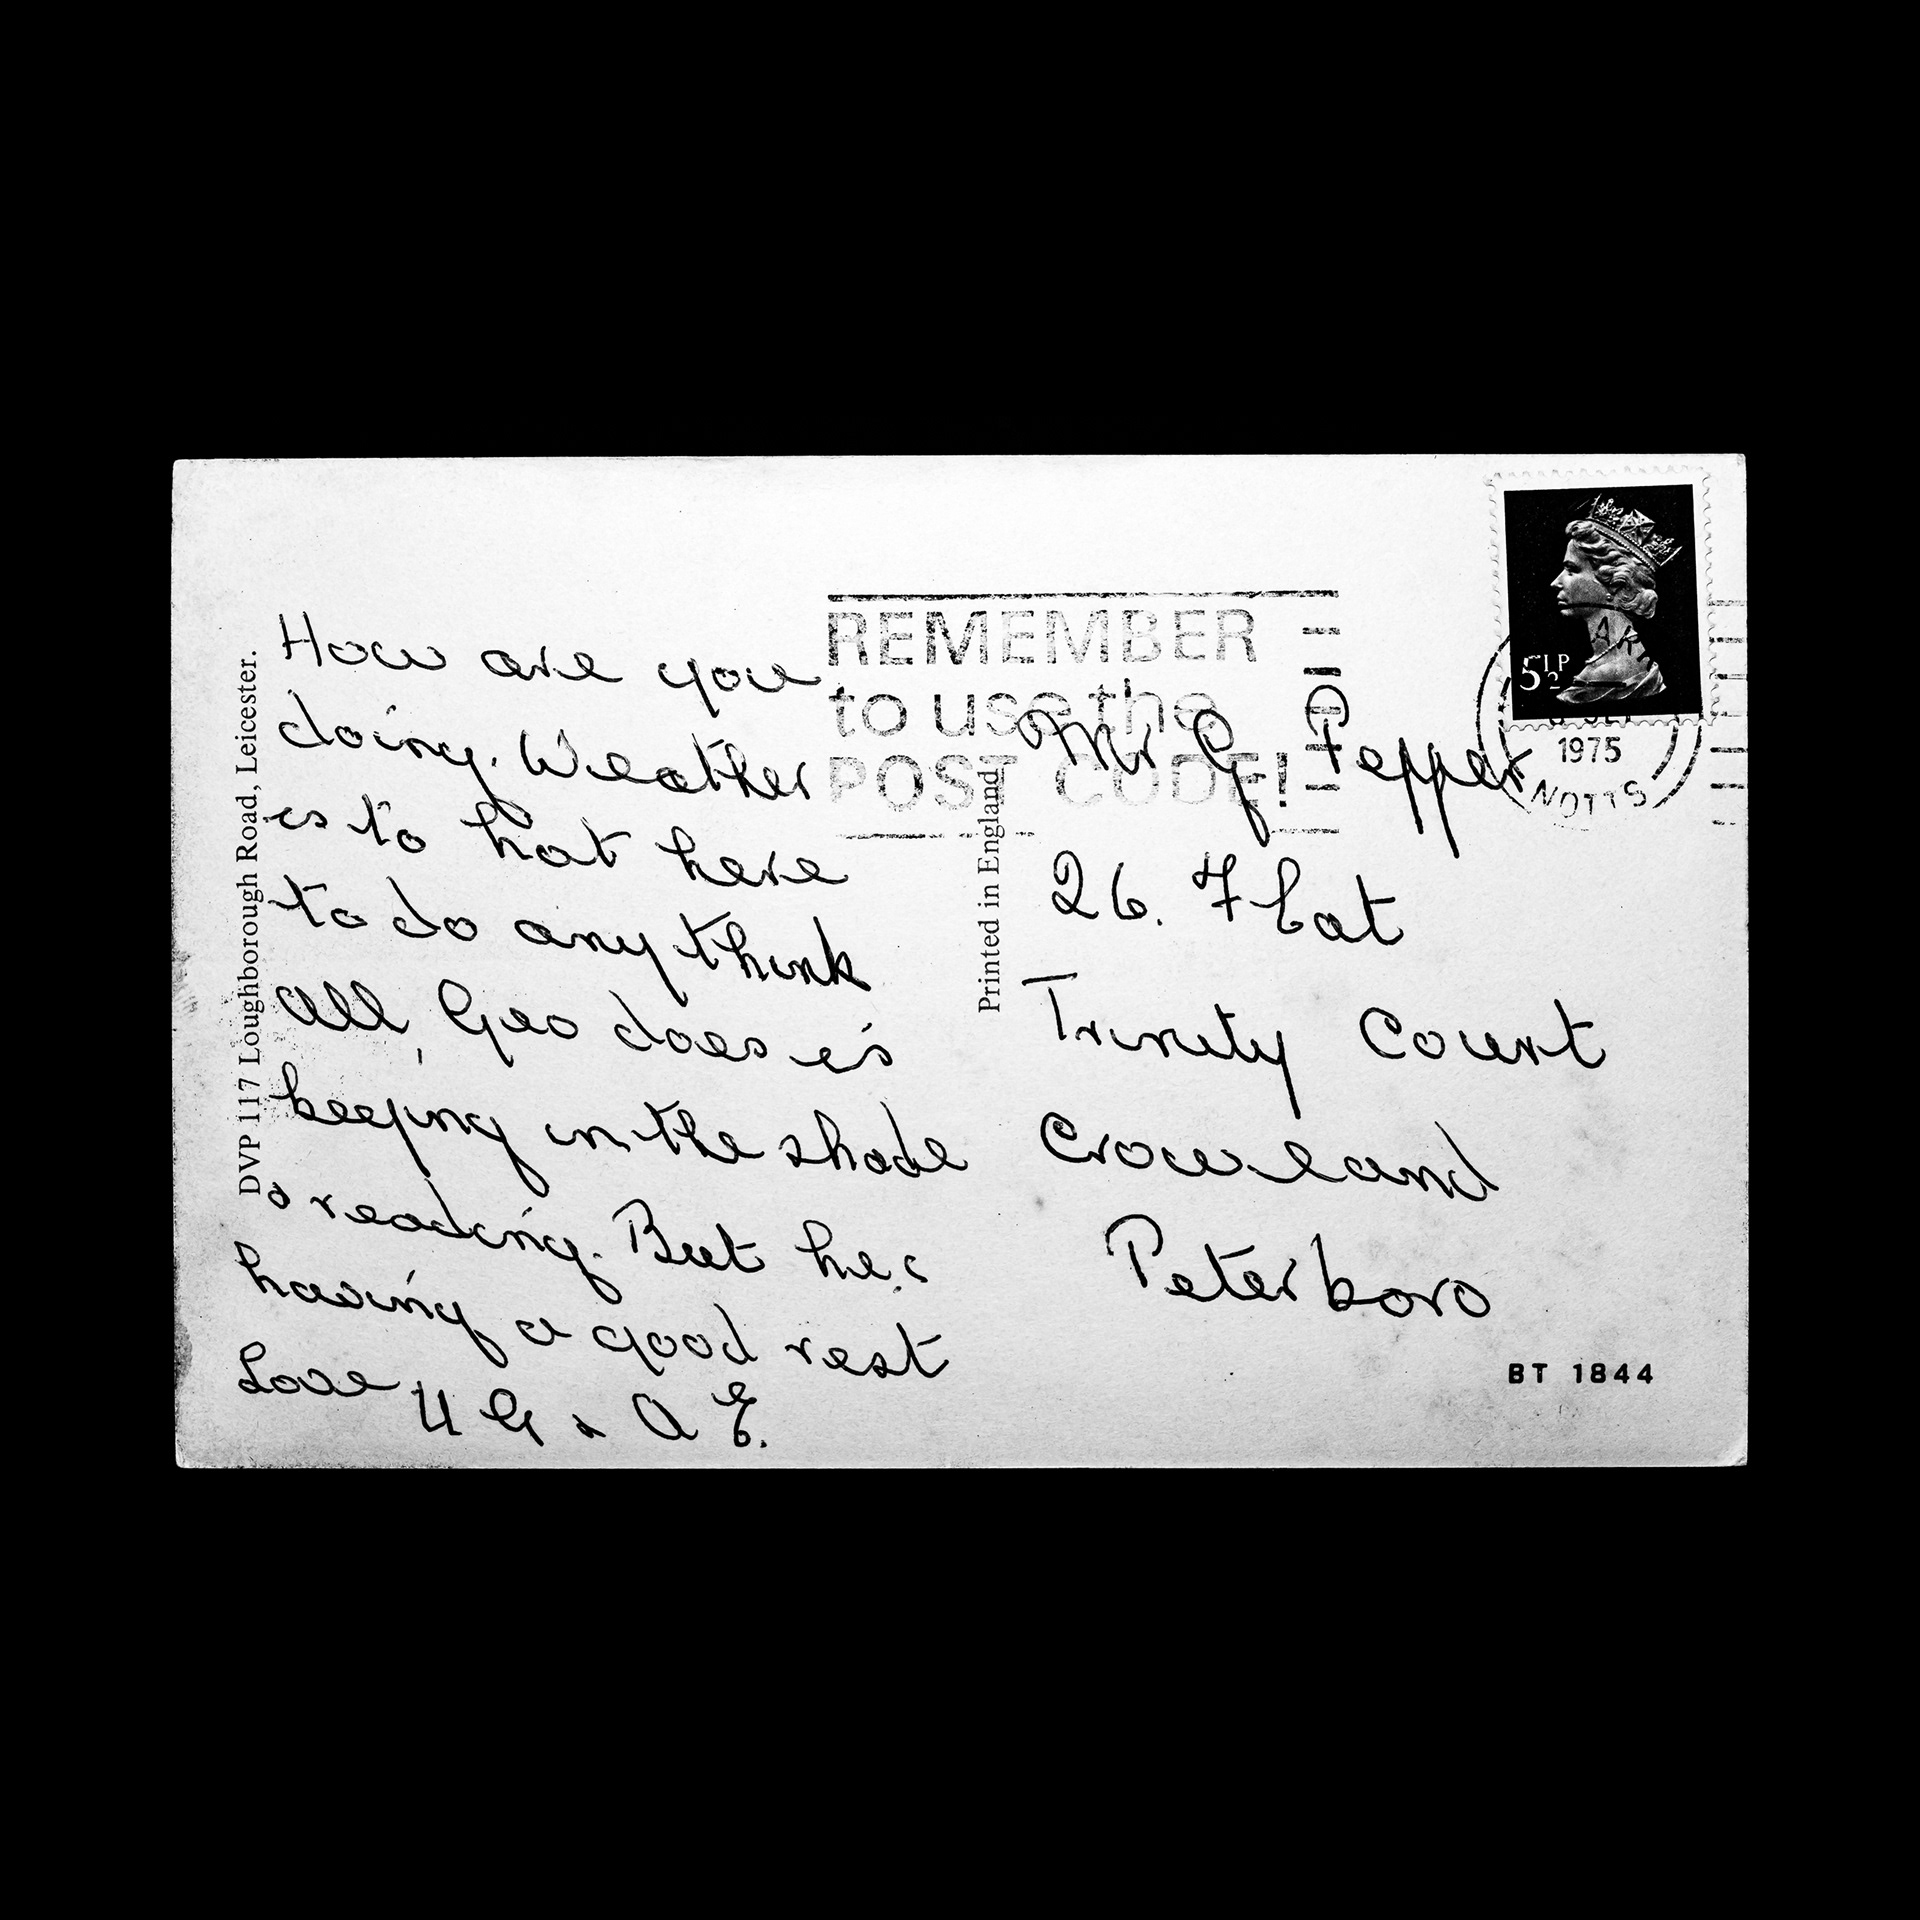 DVP 117 Loughborough Road, Leicester.
How are you
doing. Weather
is to hot here
to do any think
all, Geo does is
keeping in the shade
& reading. But he.s
having a good rest
Love U G & A E.
REMEMBER
to use the
POST CODE!
Printed in England
5½P
1975
NOTTS
Mr G Pepper
26. Flat
Trinity Court
Crowland
Peterboro
BT 1844